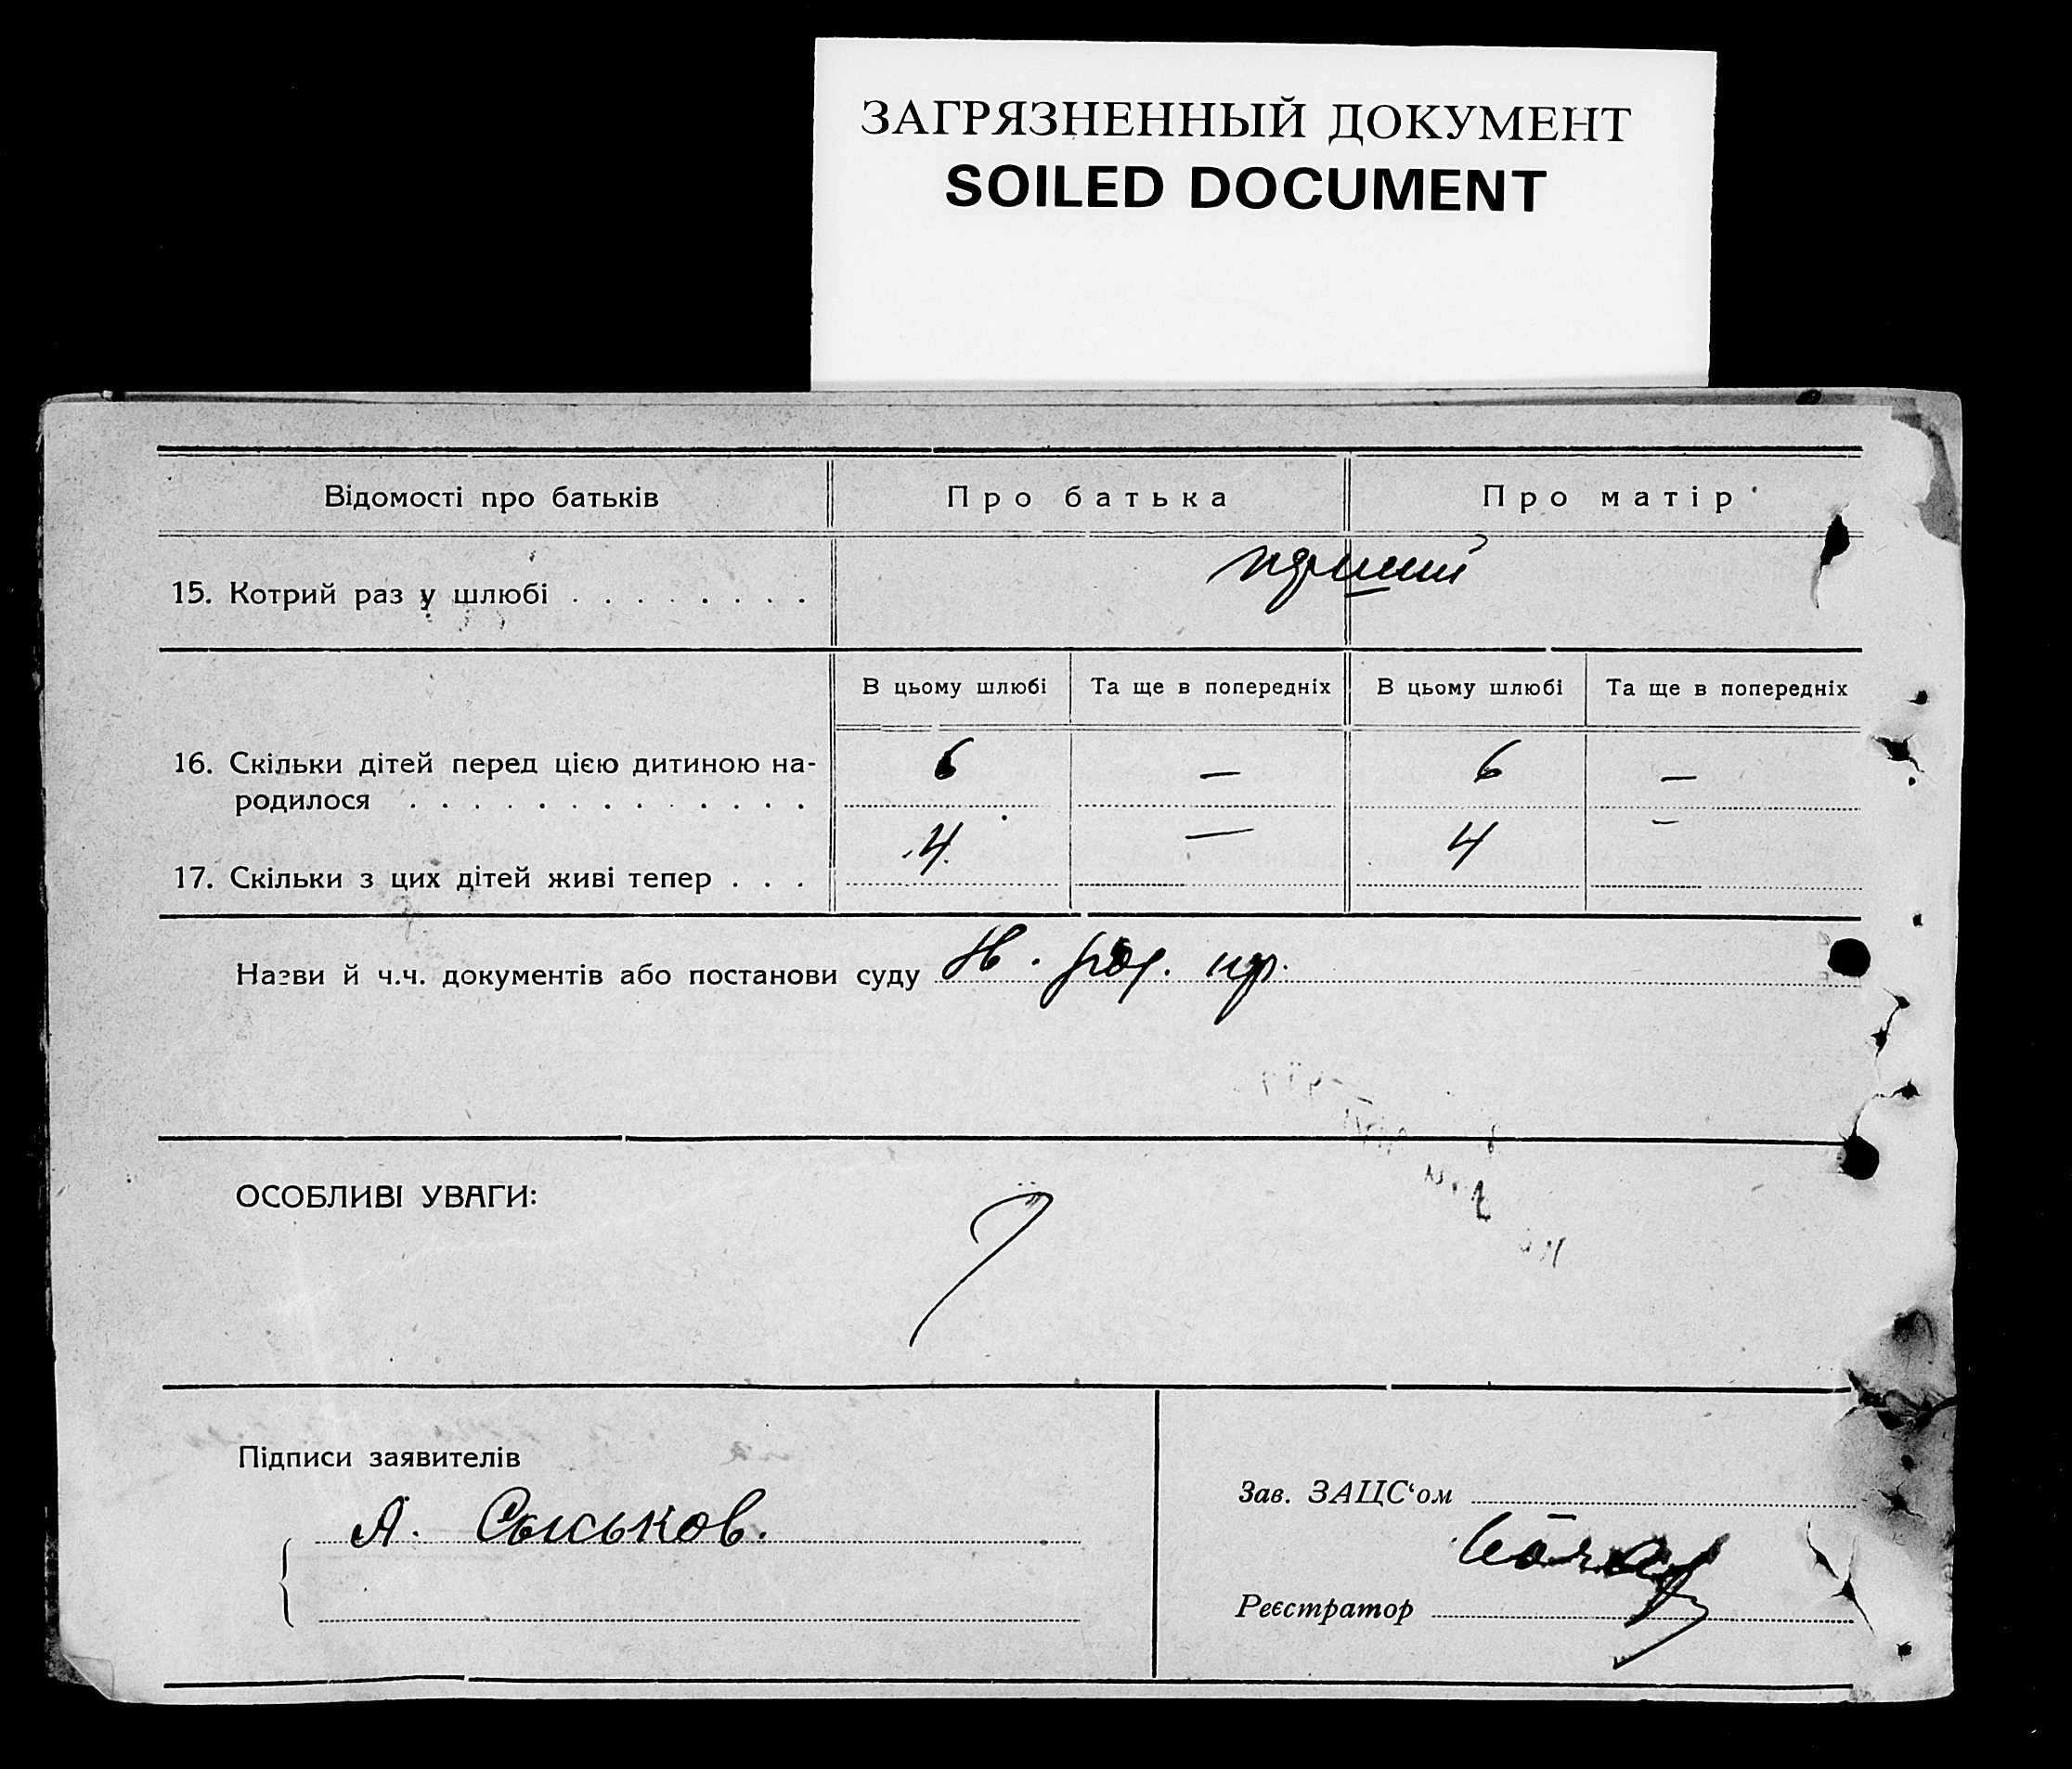 ЗАГРЯЗНЕННЫЙ ДОКУМЕНТ
SOILED DOCUMENT
Відомості про батьків Про батька Про матір
перший
15. Котрий раз у шлюбі . . . . . . . .
В цьому шлюбі Та ще в попередніх В цьому шлюбі Та ще в попередніх
16. Скільки дітей перед цією дитиною на-
родилося . . . . . . . . . . . . . 6 — 6 —
17. Скільки з цих дітей живі тепер . . . 4 — 4 —
Назви й ч.ч. документів або постанови суду
ОСОБЛИВІ УВАГИ:
Підписи заявителів
Зав. ЗАЦС‘ом
А. Сыськов.
Реєстратор